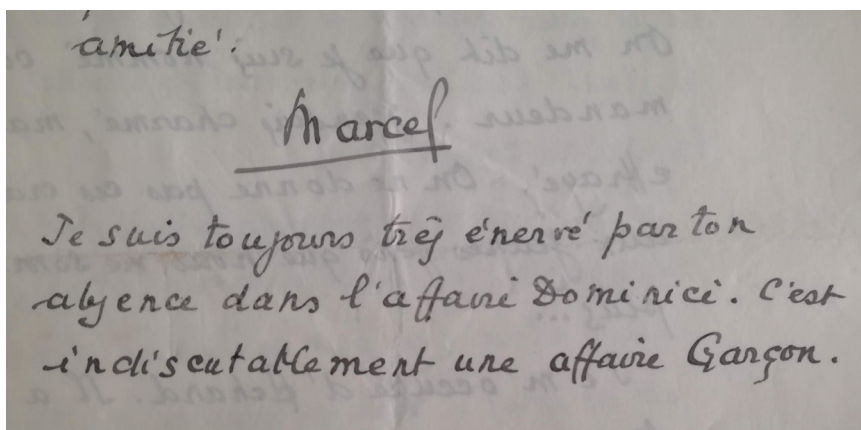 amitié.
Marcel
Je suis toujours très énervé par ton
absence dans l'affaire Dominici. C'est
indiscutablement une affaire Garçon.